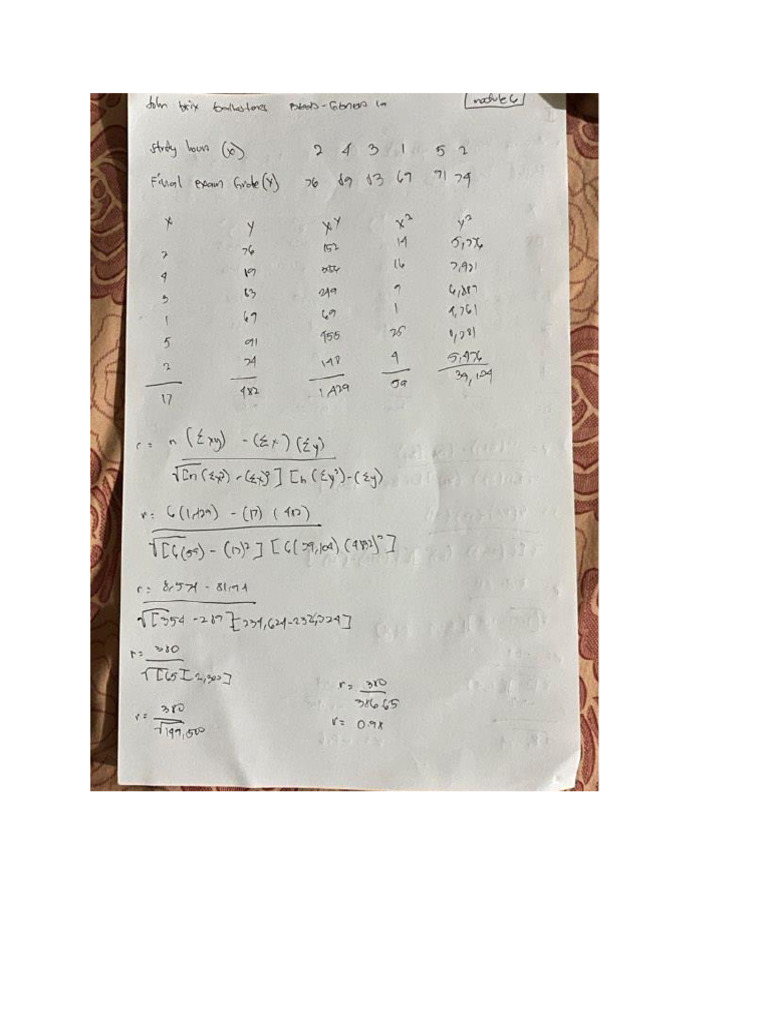 John
module 6
Study hours (x) 2 4 3 1 5 2
Final exam Grade (Y) 76 89 83 69 91 74
x y xy x² y²
2 76 152 14 5,776
4 89 356 16 7,921
3 83 249 9 6,889
1 69 69 1 4,761
5 91 455 25 8,281
2 74 148 4 5,476
17 482 1,429 59 39,104
r = n (Σxy) - (Σx) (Σy)
√[n(Σx²) - (Σx)²] [n(Σy²) - (Σy)
r = 6(1,429) - (17) (482)
√[6(59) - (17)²] [6(39,104) (482)²]
r = 8,574 - 8194
√[354 - 289][234,624-232,324]
r = 380
√[65][2,300]
r = 380
386.65
r = 380
√149,500
r = 0.98